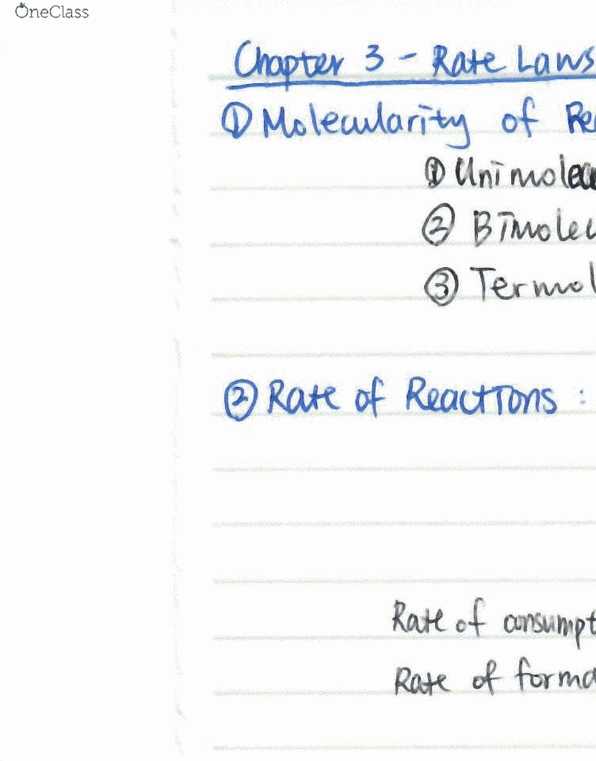 OneClass
Chapter 3 - Rate Laws
① Molecularity of Re
① Unimolecu
② Bimolecu
③ Termol
② Rate of Reactions :
Rate of consumpt
Rate of forma